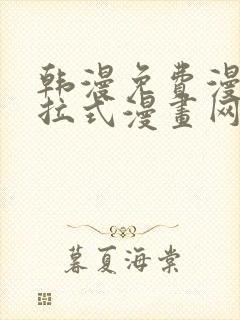 韩漫免费漫
拉式漫畫网
暮夏海棠